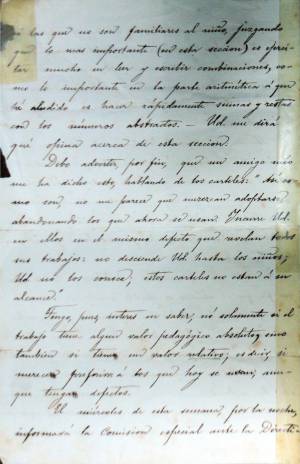 á las que no son familiares al niño, juzgando
que lo mas importante (en esta seccion) es ejerci-
tar mucho en leer y escribir combinaciones, co-
mo lo importante en la parte aritmética á que
hé aludido es hacer rápidamente sumas y restas
con los números abstractos. — Ud. me dirá
qué opina acerca de esta seccion.
Debo advertir, por fin, que un amigo mio
me ha dicho esto, hablando de los carteles: "Así co-
mo son, no me parece que merezcan adoptarse,
abandonando los que ahora se usan. Incurre Ud.
en ellos en el mismo defecto que revelan todos
sus trabajos: no desciende Ud. hasta los niños;
Ud. no los conoce, estos carteles no están á su
alcance."
Tengo, pues, interes en saber, nó solamente si el
trabajo tiene algun valor pedagógico absoluto, sino
tambien si tiene un valor relativo; es decir, si
merecen preferirse á los que hoy se usan, aun-
que tengan defectos.
El miércoles de esta semana, por la noche,
informará la Comision especial ante la Directi-